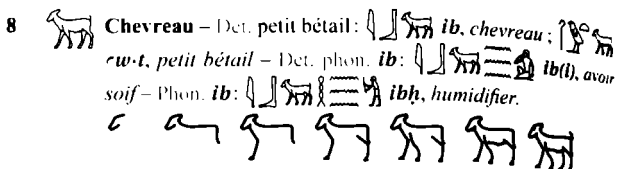 8 𓃙 Chevreau – Dét. petit bétail : 𓇋𓃀𓃙 ib, chevreau ; 𓃙
ꜥw·t, petit bétail – Dét. phon. ib : 𓇋𓃀𓃙𓈗𓀁 ib(i), avoir
soif – Phon. ib : 𓇋𓃀𓃙𓎛𓈗𓀜 ibḥ, humidifier.